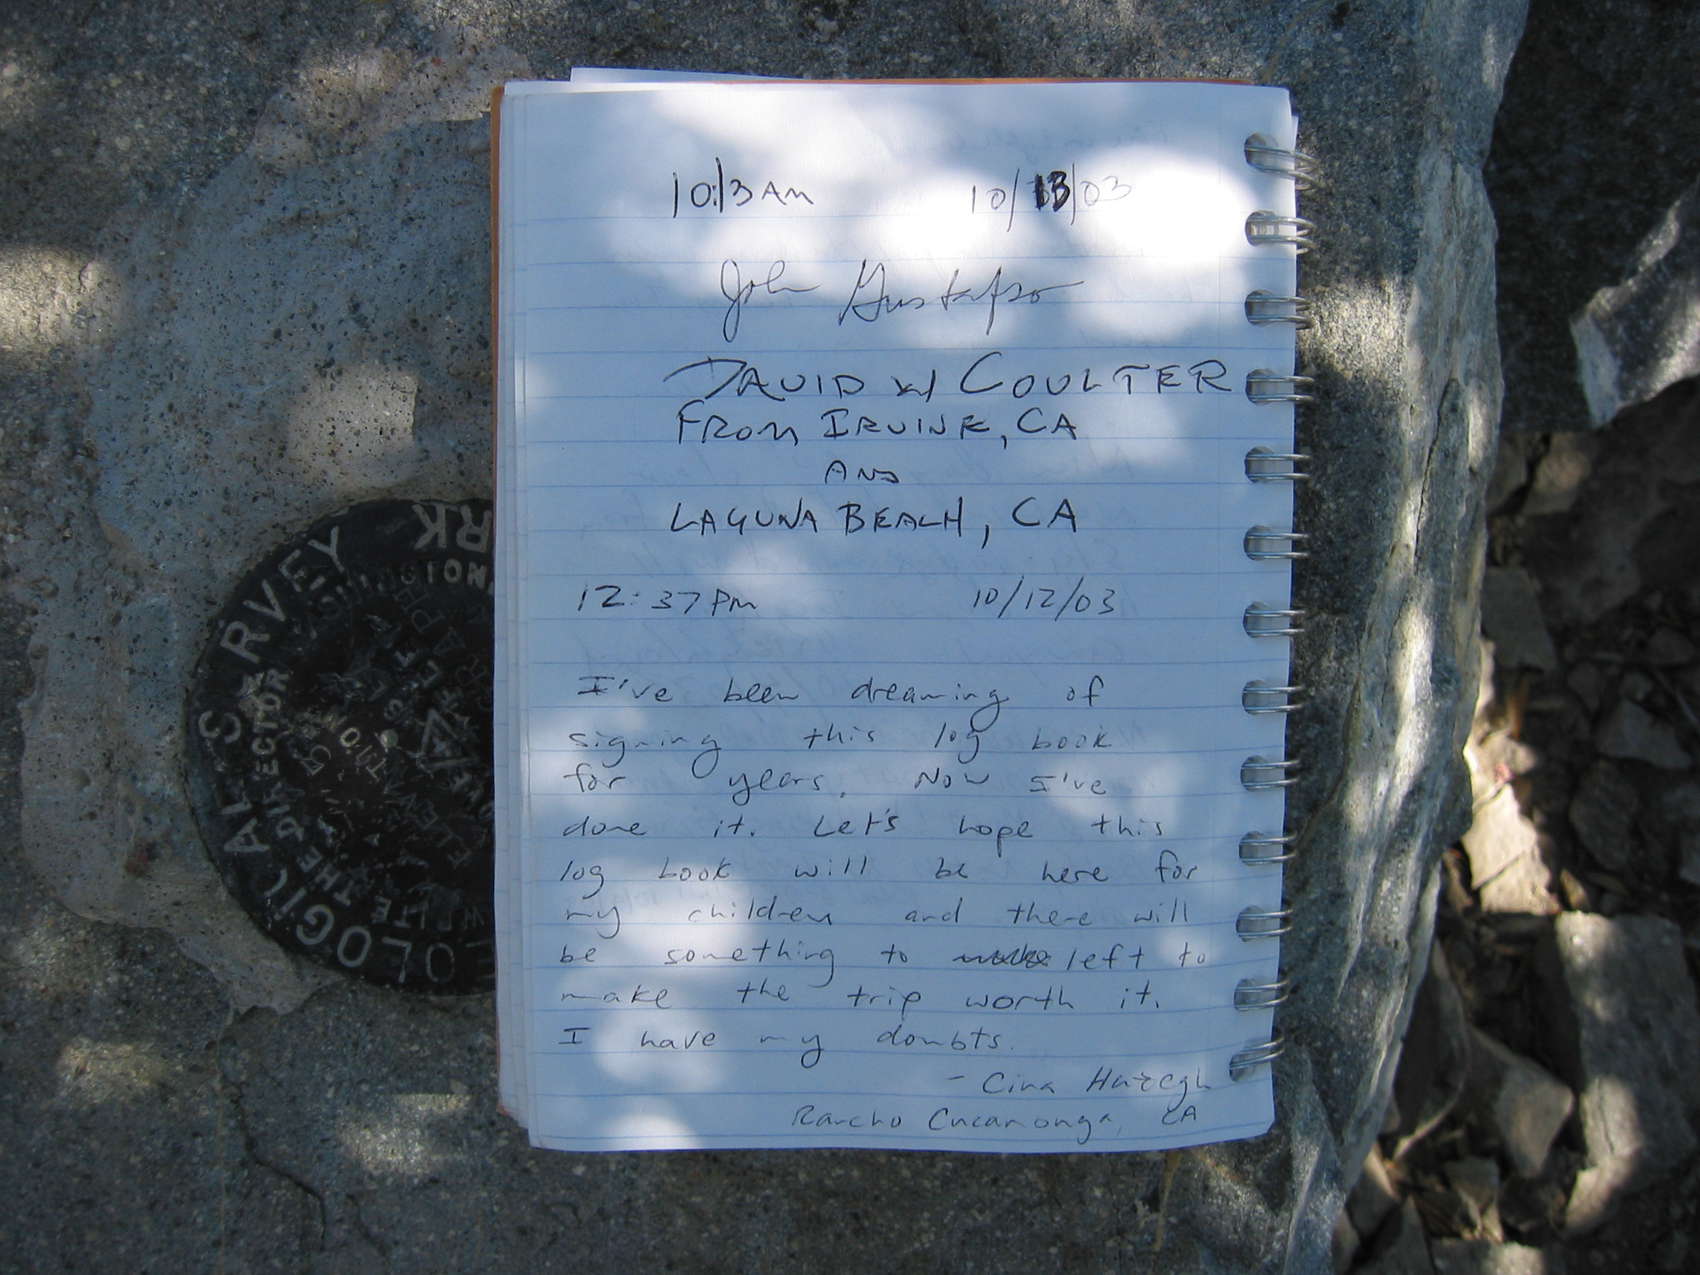 10:13 AM 10/13/03
John Gustafso
DAVID W COULTER
FROM IRVINE, CA
AND
LAGUNA BEACH, CA
12:37 PM 10/12/03
I've been dreaming of
signing this log book
for years. Now I've
done it. Let's hope this
log book will be here for
my children and there will
be something to left to
make the trip worth it.
I have my doubts.
- Cina
Rancho Cucamonga, CA
RVEY
RK
INGTON
AL S
DIRECTOR
OLOGIL
WRITE THE
ELEVA